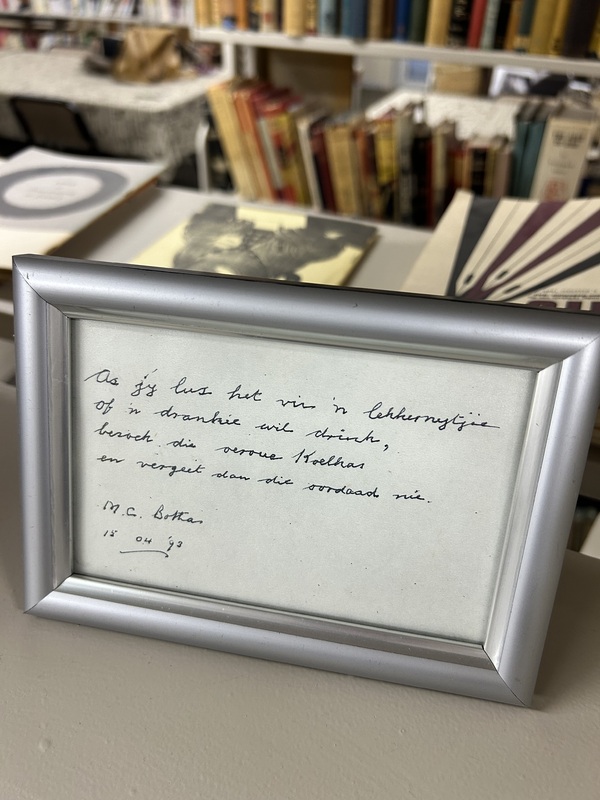 As jy lus het vir 'n lekkernytjie
of 'n drankie wil drink,
besoek die vroue Koelhas
en vergeet dan die oordaad nie.
M.C. Bothas
15 04 '93